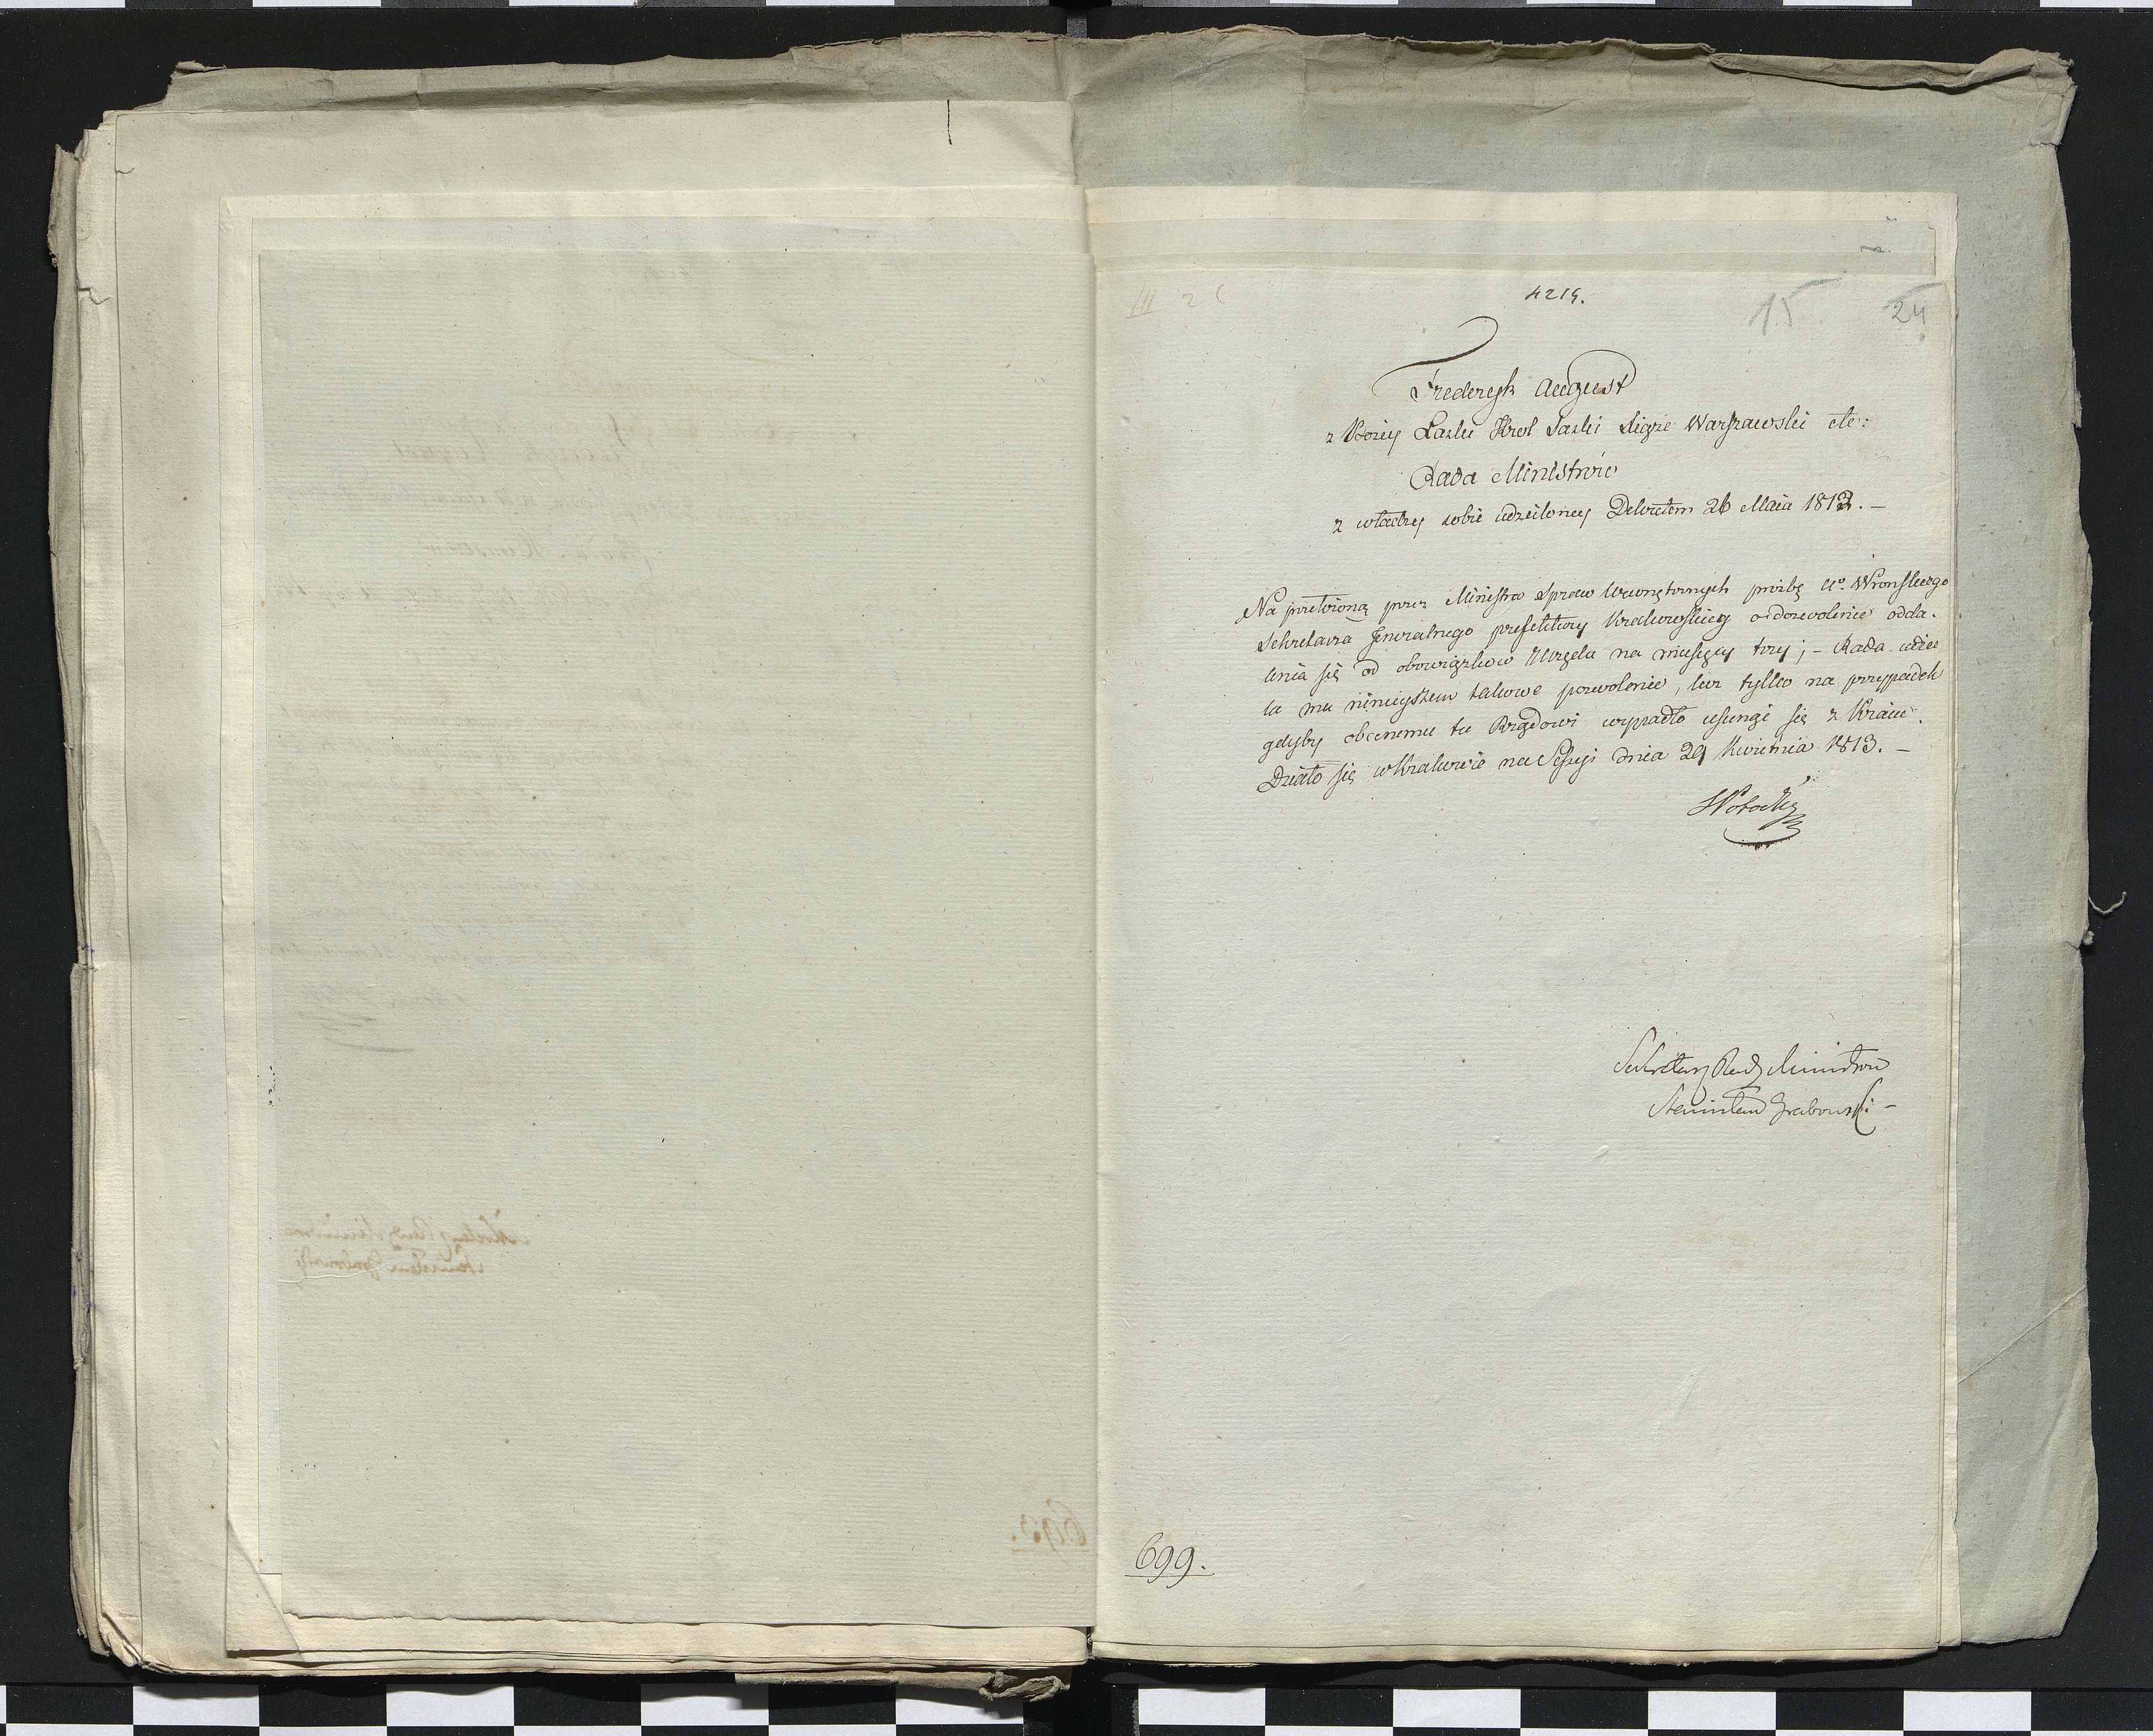 III 2 C
4219.
15 24
Frederyk August
z Bożey Łaski Krol Saski Xiąże Warszawski etc:
Rada Ministrów
z władzy sobie udzieloney Dekretem 26 Maia 1812. —
Na przełożoną przez Ministra Spraw Wewnętrznych prożbę Uo. Wronskiego
Sekretarza Jeneralnego prefektury Krakowskiey o dozwolenie odda-
lenia się od obowiązkow Urzędu na miesięcy trzy; – Rada udzie
la mu ninieyszem takowe pozwolenie, lecz tylko na przypadek
gdyby obecnemu tu Rządowi wypadło usunąć się z Kraiu.
Działo się w Krakowie na Sessyi dnia 29 Kwietnia 1813. —
S Potocki
Sekretarz Rady Ministrow
Stanisław Grabowski –
699.